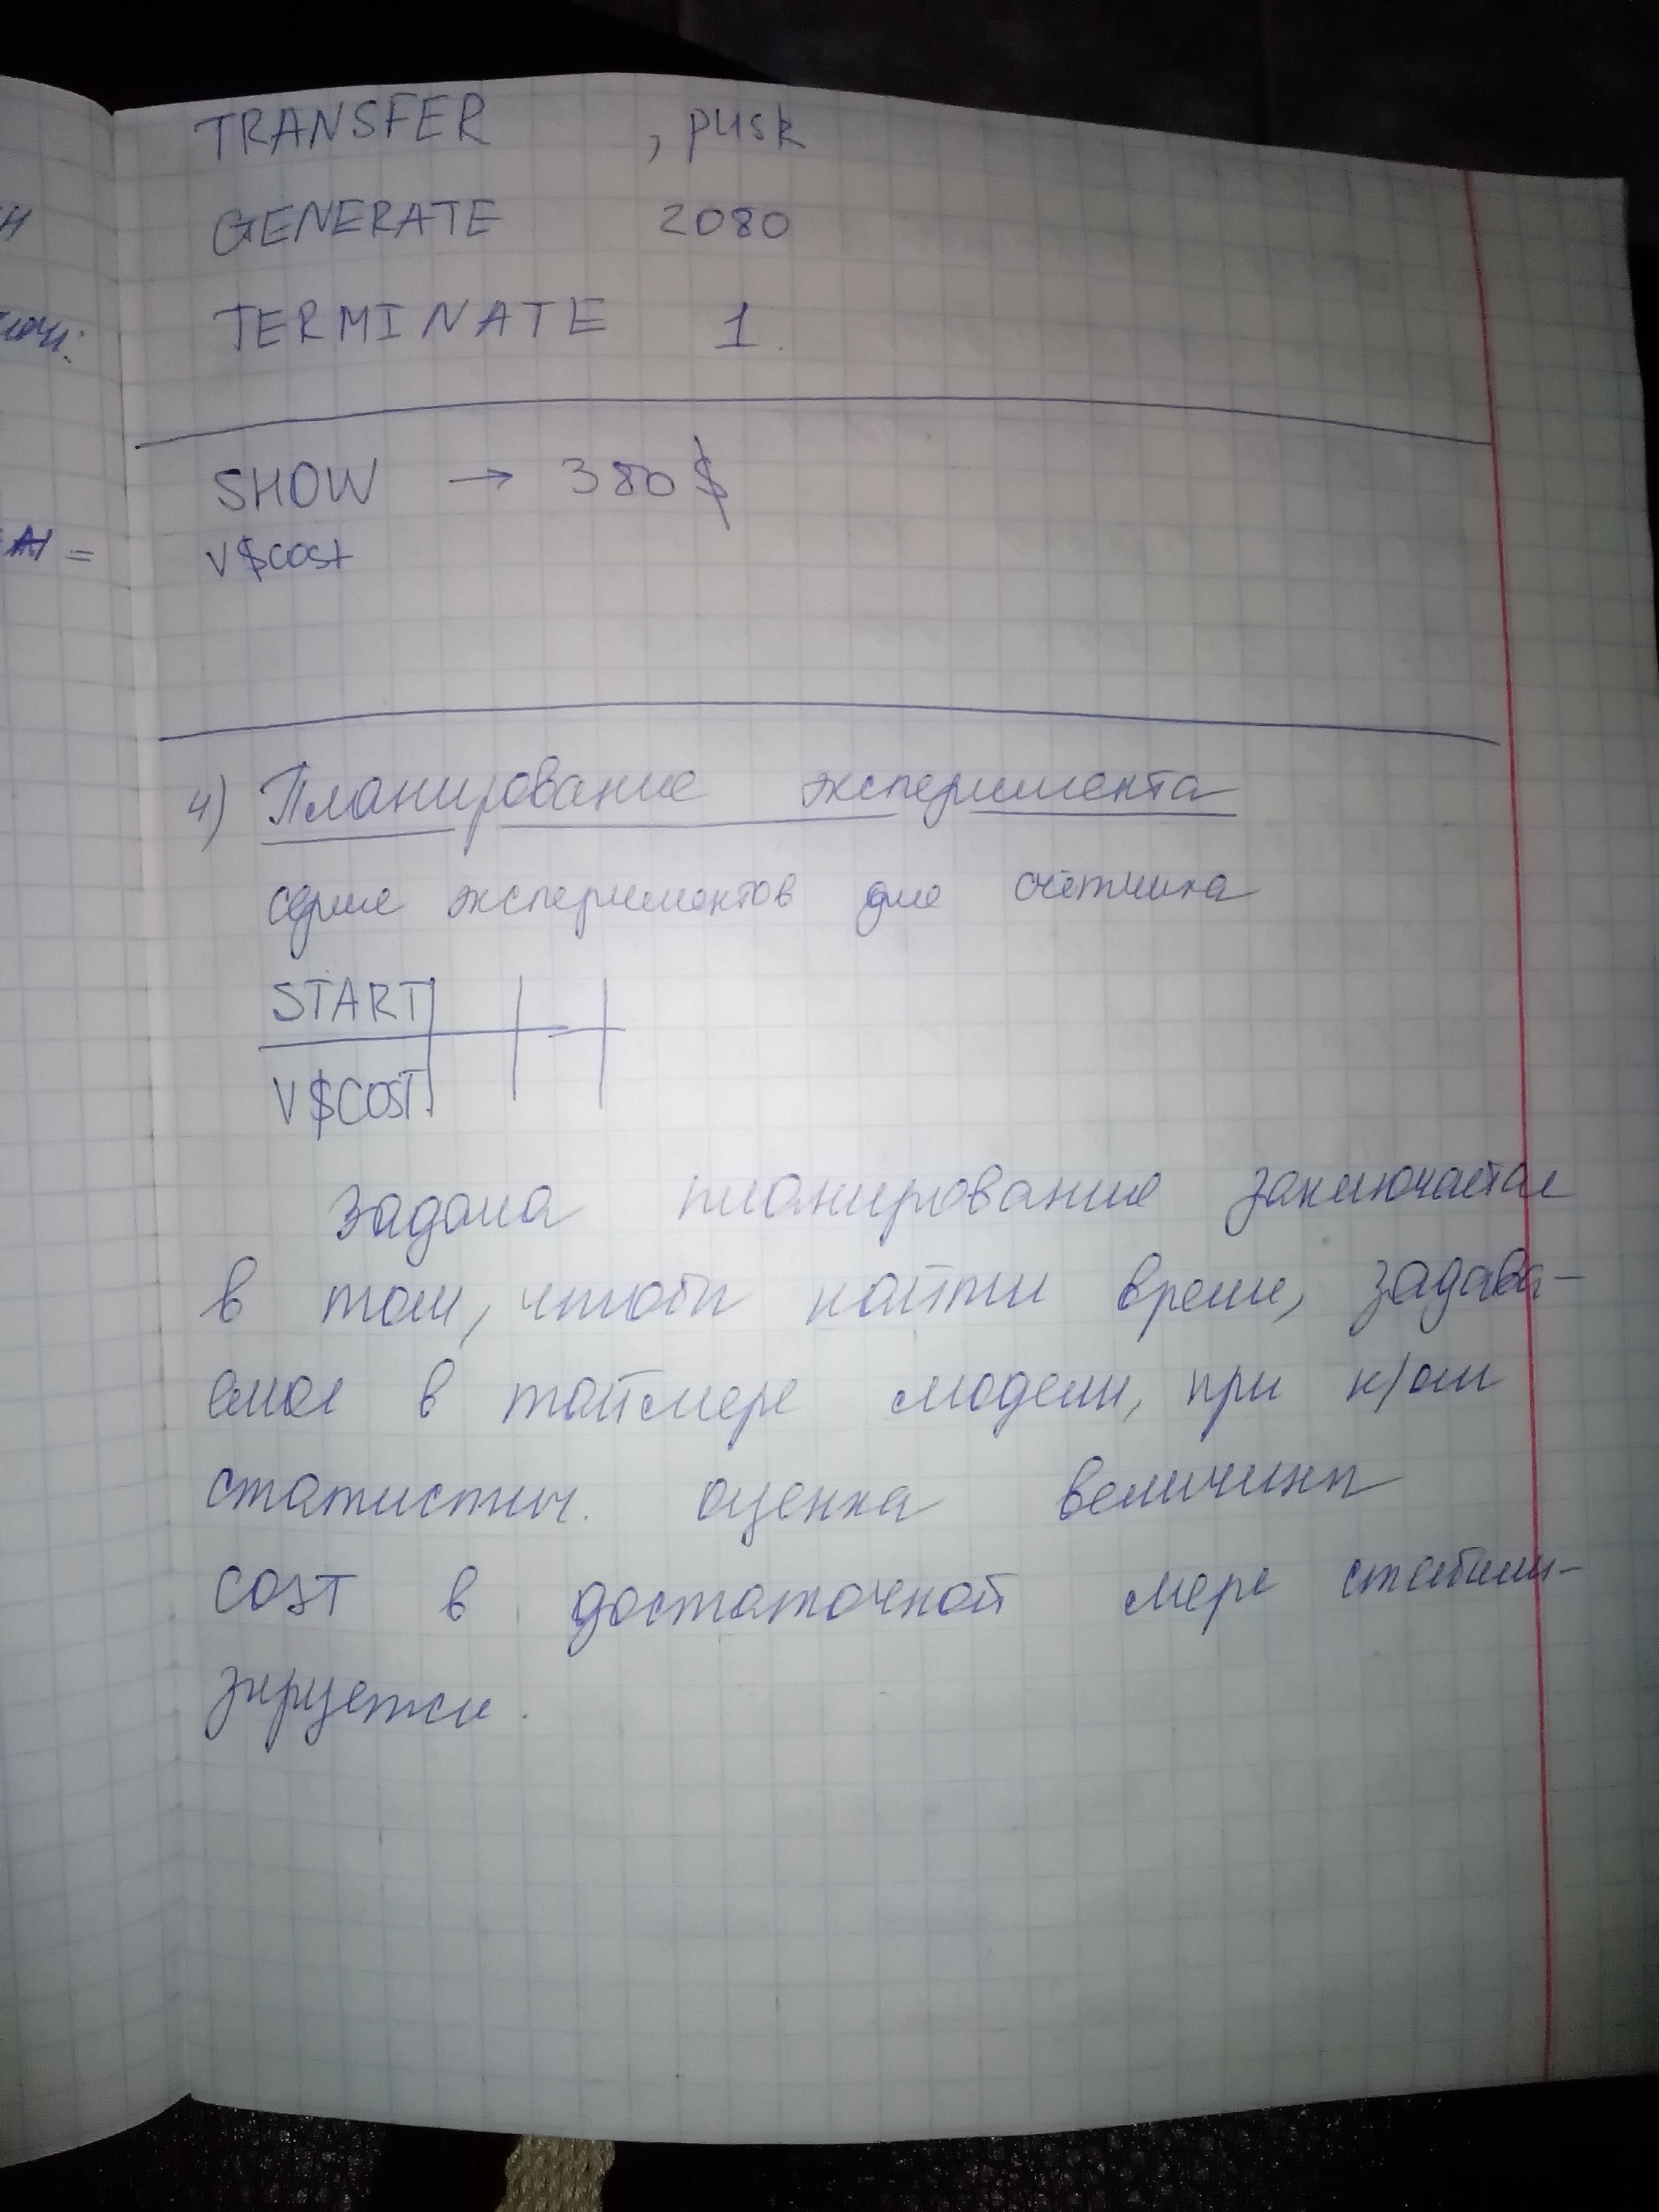 TRANSFER , pusk
GENERATE 2080
TERMINATE 1
SHOW → 380$
V$cost
4) Планирование эксперимента
серия экспериментов для счётчика
START
V$COST
Задача планирования заключается
в том, чтобы найти время, задава-
емое в таймере модели, при к/ом
статистич. оценка величины
COST в достаточной мере стабили-
зируется.